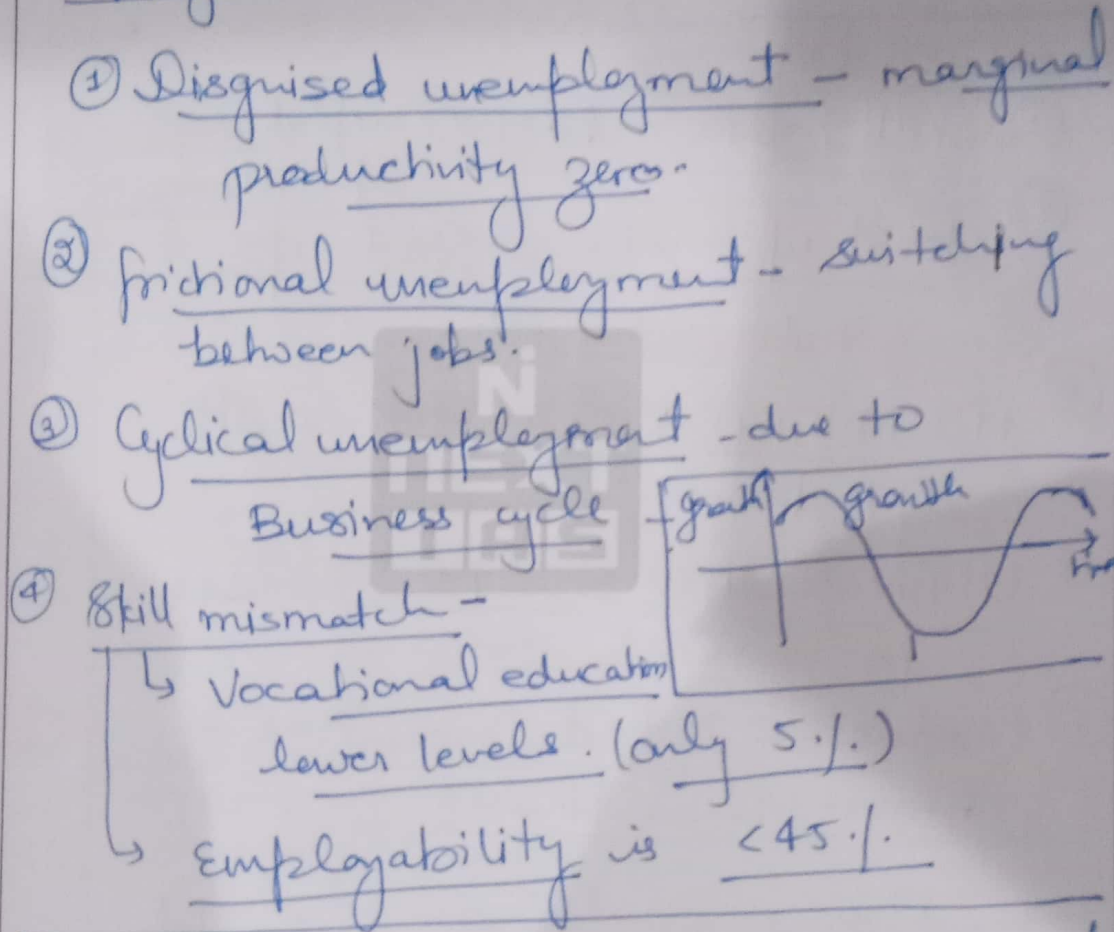 ① Disguised unemployment - marginal
productivity zero.
② frictional unemployment - switching
between jobs.
③ Cyclical unemployment - due to
Business cycle
growth growth
Time
④ Skill mismatch -
↳ Vocational education
lower levels. (only 5%)
↳ Employability is <45%
N
NEXT
IAS